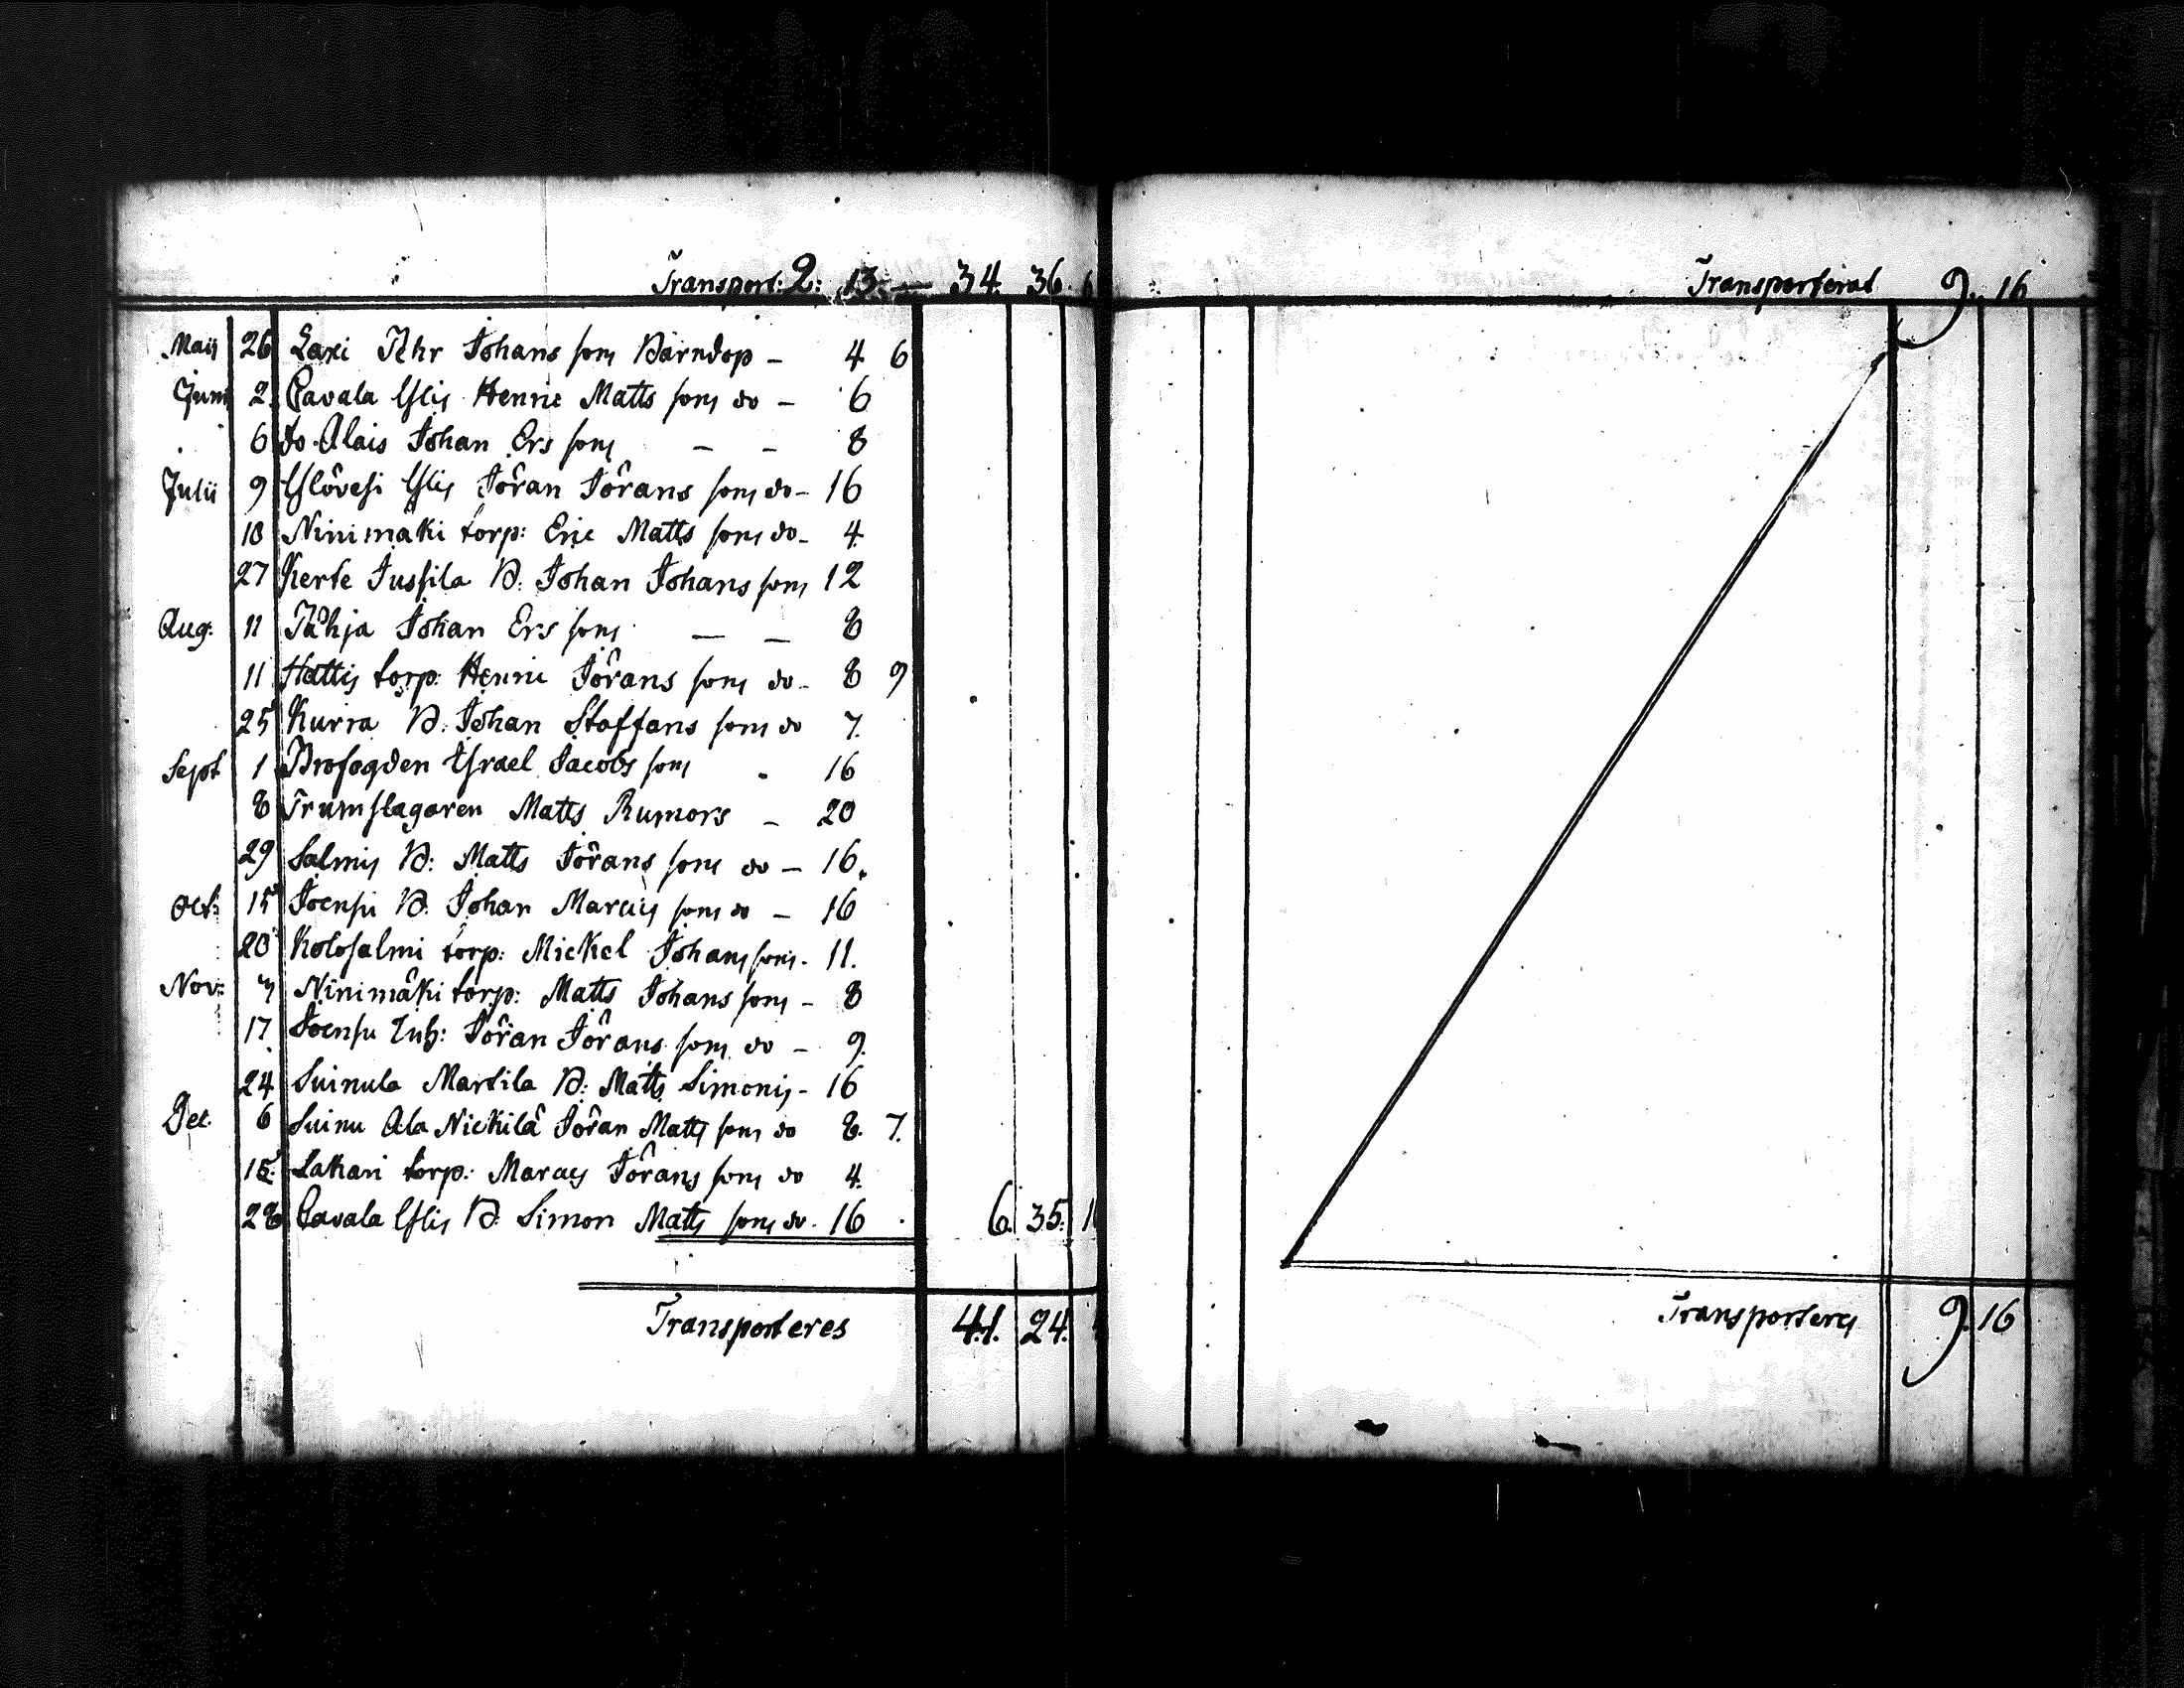 Transport: 2: 13. — 34. 36. 6
Maij 26 Laxi Pehr Johans son Barndop – 4. 6
Junii 2. Pavala Yslis Henric Matts son do – 6
6 do Alais Johan Ers son – – 8
Julii 9 Ylövesi Yslis Jöran Jörans son do – 16
10 Ninimäki torp: Eric Matts son do – 4.
27 Kerte Jussila B: Johan Johans son 12
Aug: 11 Jähja Johan Ers son — — 8
11 Hattis torp: Henric Jörans son do – 8 9
25 Kurra B: Johan Staffans son do 7.
Sept 1 Brofogden Israel Jacobs son 16
8 Trumslagaren Matts Rumors – 20
29 Salmis B: Matts Jörans son do – 16.
Oct: 15 Joensu B: Johan Marcus son do – 16
20 Kolosalmi torp: Mickel Johans son – 11.
Nov: 3 Ninimäki torp: Matts Johans son – 8
17. Joensu Inh: Jöran Jörans son do – 9.
24 Suinula Martila B: Matts Simonis – 16
Dec. 6 Suinu Ala Nickilä Jöran Matts son do 8. 7.
15. Lakari torp: Marcus Jörans son do 4.
28 Pavala Yslis B: Simon Matts son do – 16 6. 35.
Transporteres 41. 24.
Transporterat 9. 16
Transporteres 9. 16